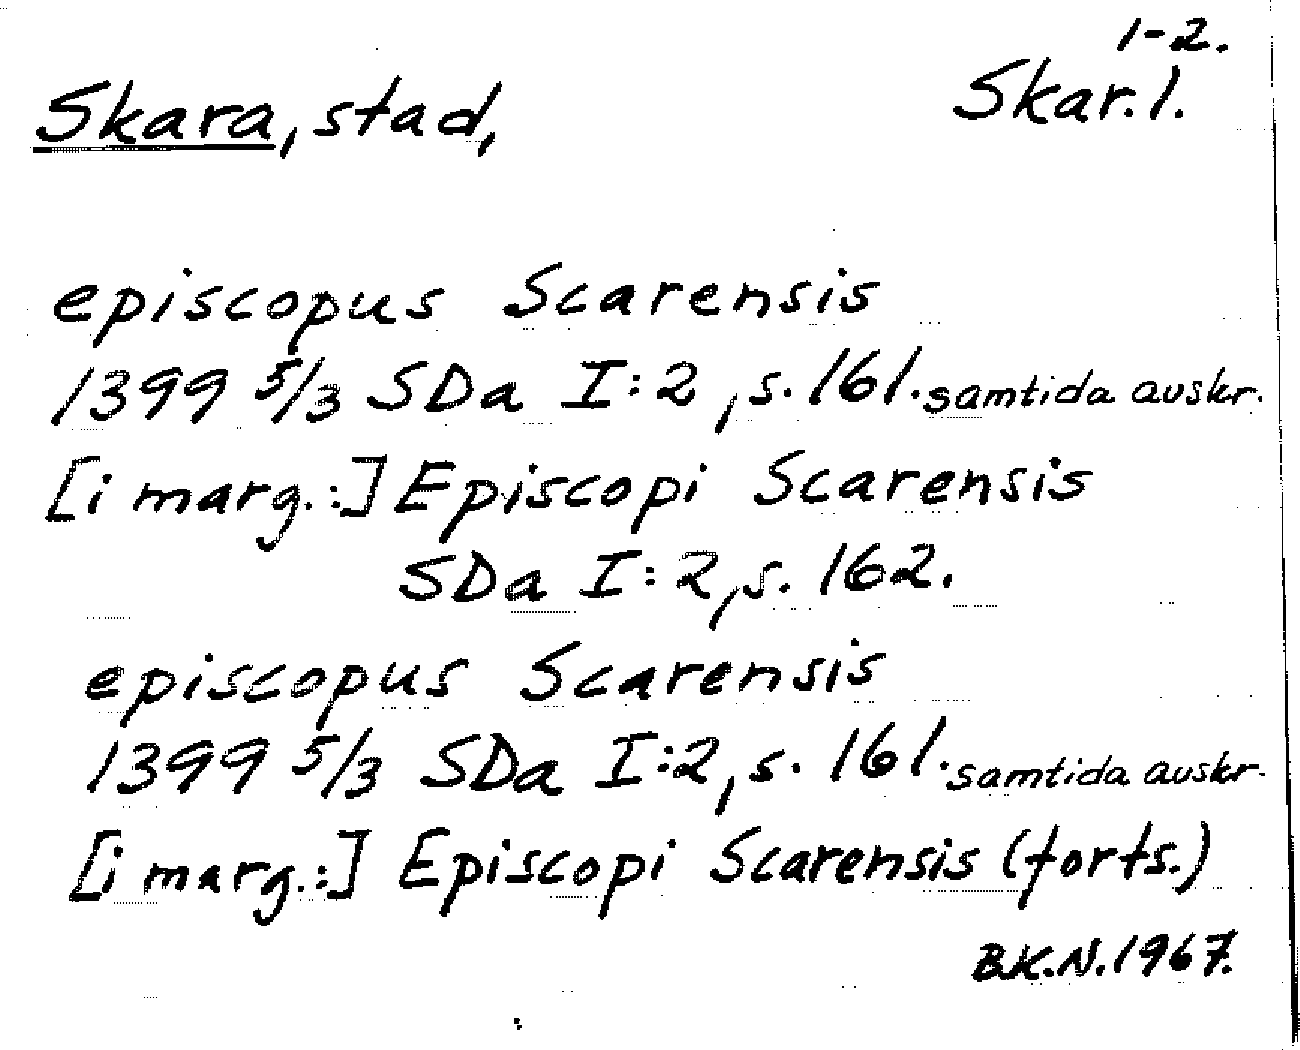 1-2.
Skara, stad, Skar. 1.
episcopus Scarensis
1399 5/3 SDa I:2, s. 161. samtida avskr.
[i marg.:] Episcopi Scarensis
SDa I:2, s. 162.
episcopus Scarensis
1399 5/3 SDa I:2, s. 161. samtida avskr.
[i marg.:] Episcopi Scarensis (forts.)
B.K.N. 1967.